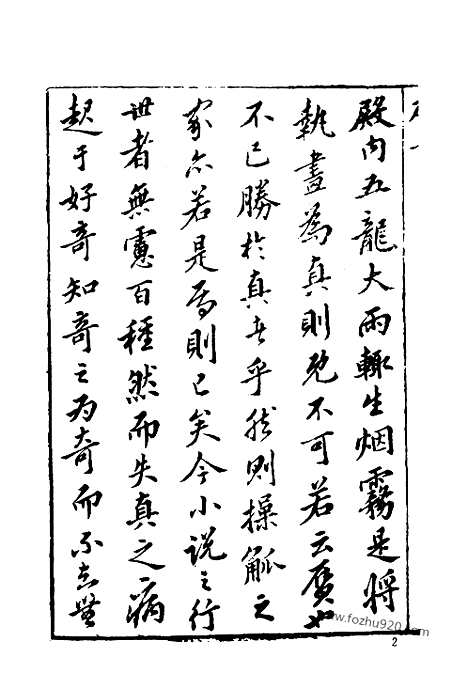 殿内五龍大雨輙生烟霧是將
執畫為真則既不可若云贋也
不已勝於真者乎然則操觚之
家亦若是焉則已矣今小説之行
世者無慮百種然而失真之病
起于好奇知奇之为奇而不知無
www.fozhu920.com
2